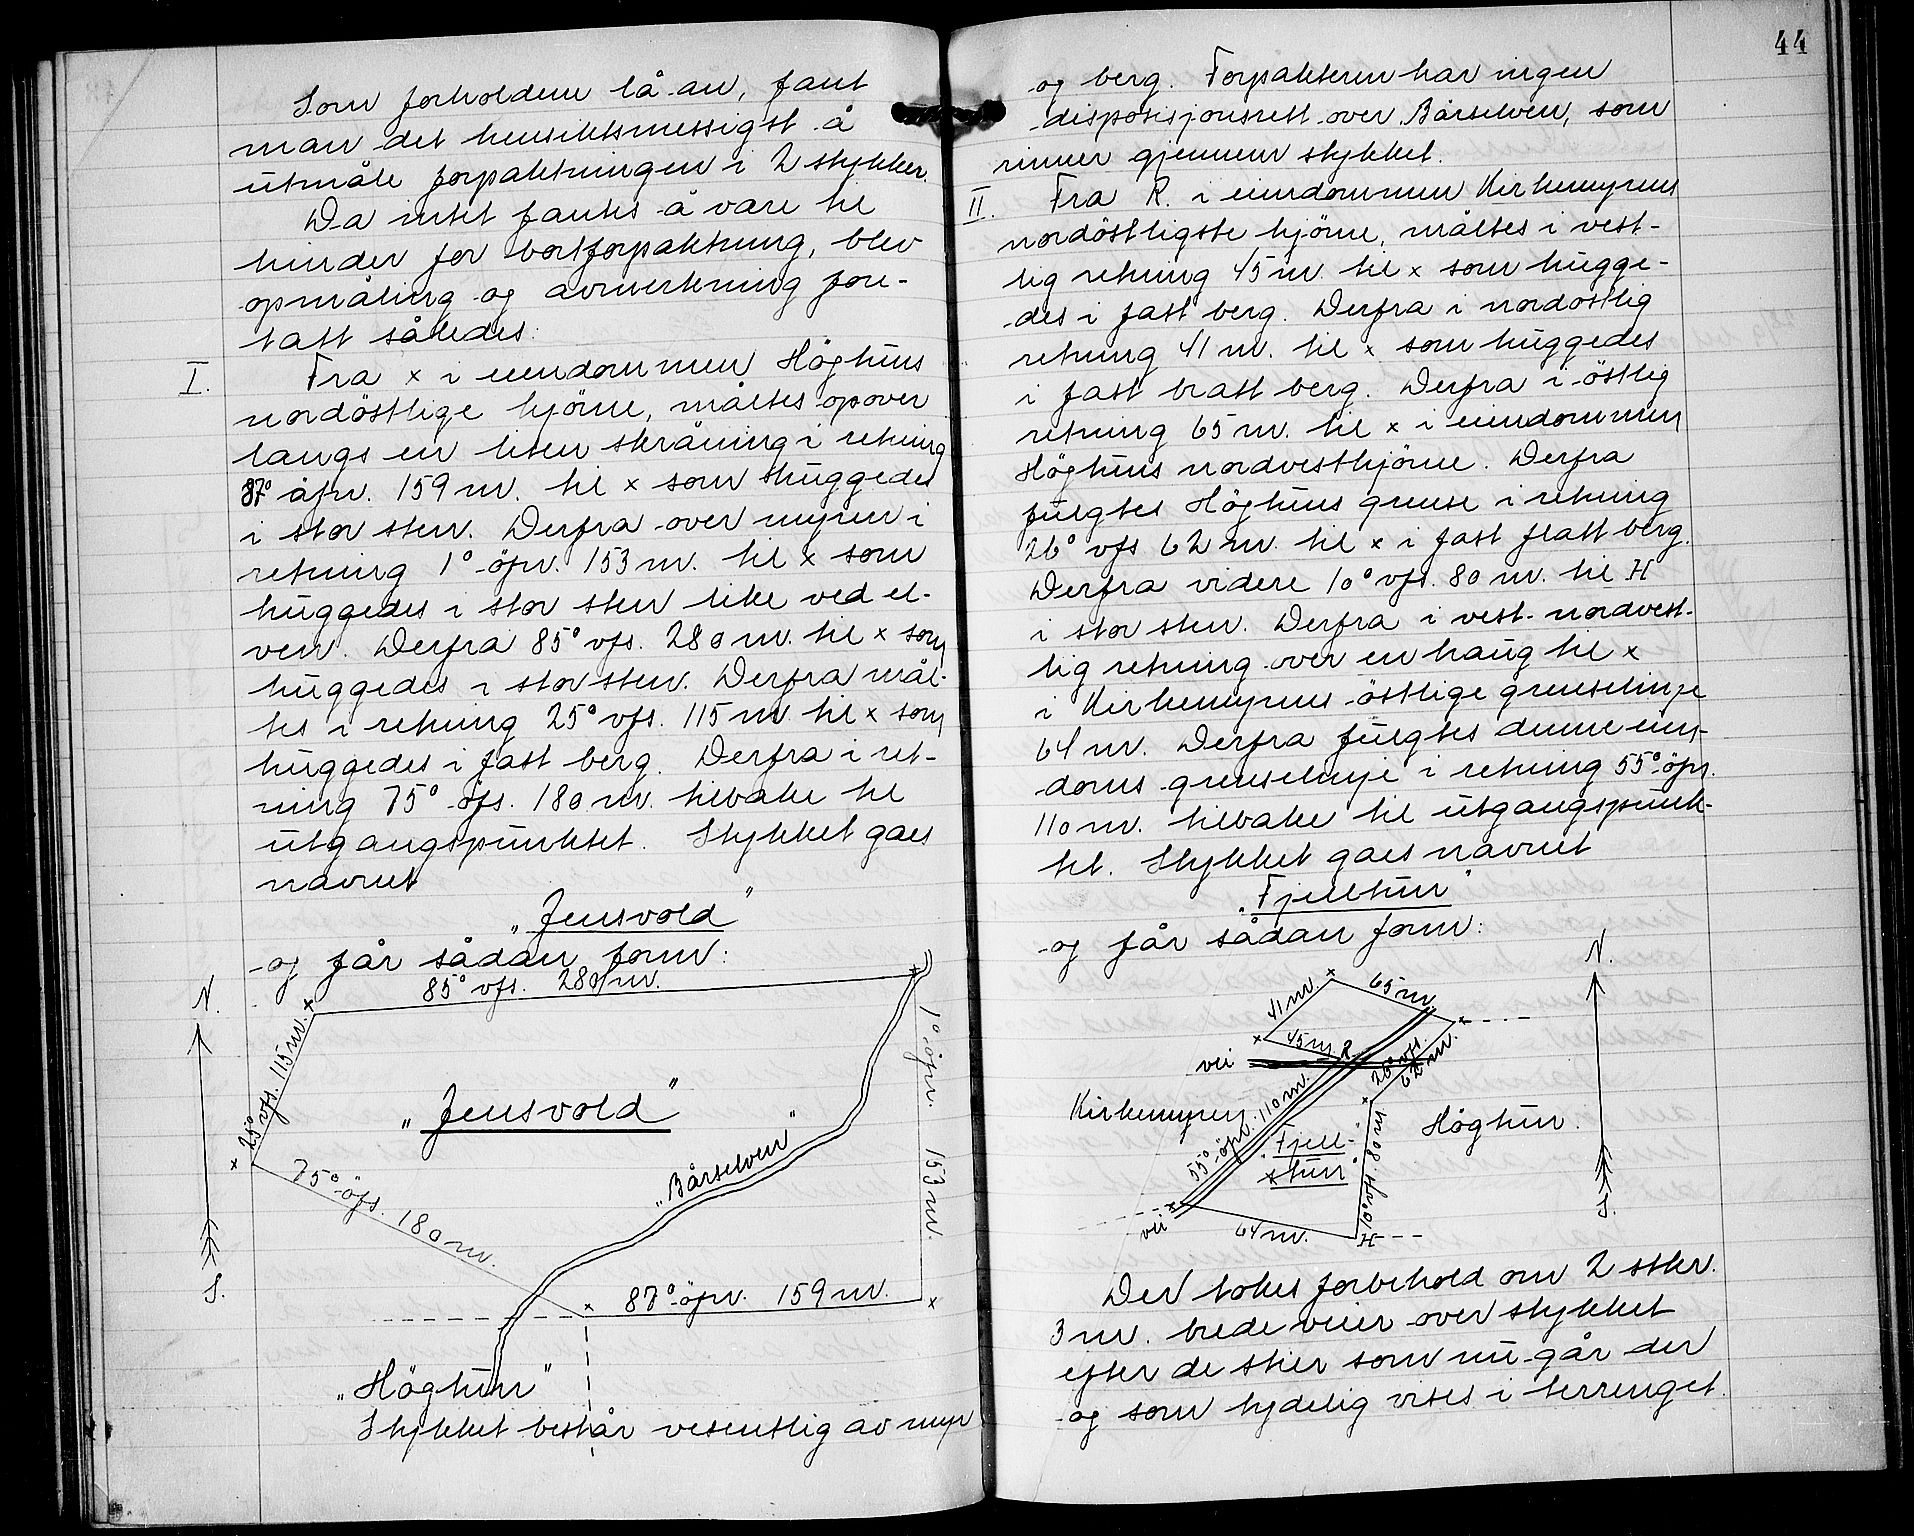 Som forholdene lå an, fant
man det hensiktsmessigst å
utmåle forpaktningen i 2 stykker.
Da intet fantes å være til
hinder for bortforpaktning, blev
opmåling og avmerkning fore-
tatt således:
I. Fra x i eiendommen Högtuns
nordöstlige hjörne, måltes opover
langs en liten skråning i retning
87° öfn. 159 m. til x som huggedes
i stor sten. Derfra over myren i
retning 1° öfn. 153 m. til x som
huggedes i stor sten like ved el-
ven. Derfra 85° vfs. 280 m. til x som
huggedes i stor sten. Derfra mål-
tes i retning 25° vfs. 115 m. til x som
huggedes i fast berg. Derfra i ret-
ning 75° öfs. 180 m. tilbake til
utgangspunktet. Stykket gaes
navnet
"Jensvold"
og får sådan form:
85° vfs. 280 m.
N.
25° vfs. 115 m.
1° öfn. 153 m.
"Jensvold"
"Bårselven"
75° öfs. 180 m.
S.
87° öfn. 159 m.
"Högtun"
Stykket består vesentlig av myr
44
og berg. Forpakteren har ingen
disposisjonsrett over Bårselven, som
rinner gjennem stykket.
II. Fra R. i eiendommen Kirkemyrens
nordöstligste hjörne, måltes i vest-
lig retning 45 m. til x som hugge-
des i fast berg. Derfra i nordöstlig
retning 41 m. til x som huggedes
i fast bratt berg. Derfra i östlig
retning 65 m. til x i eiendommen
Högtuns nordvesthjörne. Derfra
fulgtes Högtuns grense i retning
26° vfs 62 m. til x i fast flatt berg.
Derfra videre 10° vfs. 80 m. til H
i stor sten. Derfra i vest-nordvest-
lig retning over en haug til x
i Kirkemyrens östlige grenselinje
64 m. Derfra fulgtes denne eien-
doms grenselinje i retning 55° öfn.
110 m. tilbake til utgangspunk-
tet. Stykket gaes navnet
"Fjelltun"
og får sådan form:
N.
41 m.
65 m.
45 m.
R
vei
26° vfs.
62 m.
Kirkemyren
55° öfn. 110 m.
"Fjell-
tun"
10° vfs. 80 m.
Högtun.
vei
64 m.
H
S.
Der tokes forbehold om 2 stkr.
3 m. brede veier over stykket
efter de stier som nu går der
og som tydelig vises i terrenget.